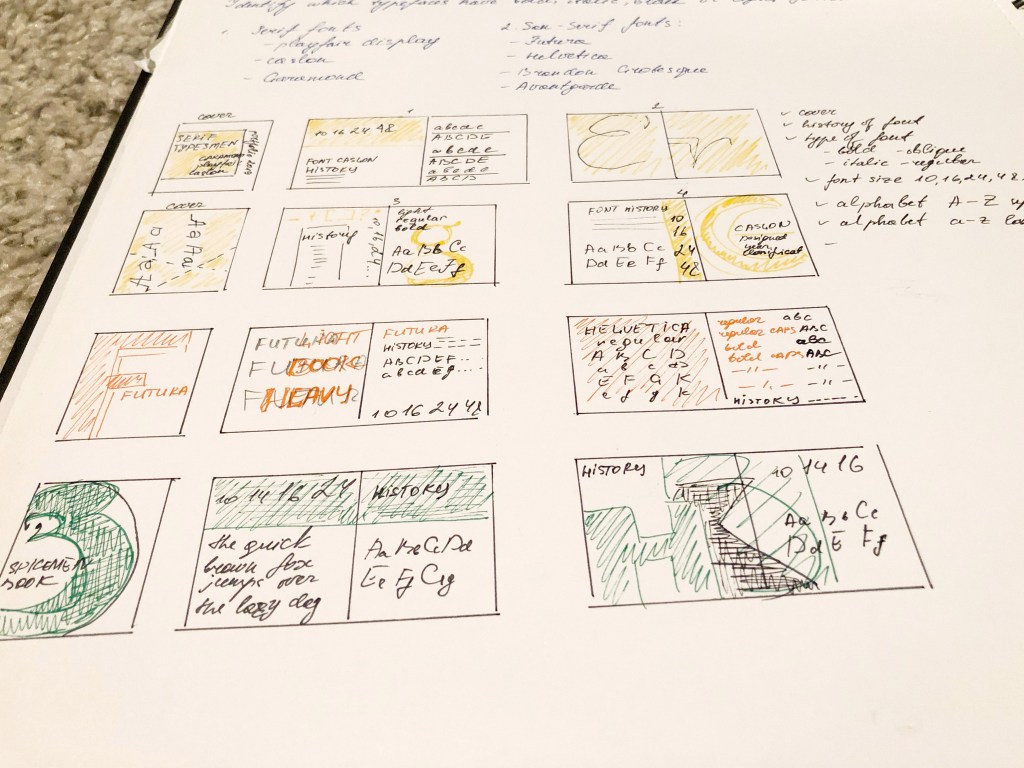 Identify which typefaces have
1. Serif fonts
- playfair display
- caslon
- Garamond
2. San-serif fonts:
- Futura
- Helvetica
- Brandon Grotesque
- Avantgarde
cover
SERIF
TYPESMEN
caslon
1
10 16 24 48
FONT CASLON
HISTORY
abcde
ABCDE
abcde
ABCDE
abcde
ABCD
2
cover
history of font
type of font
- bold - oblique
- italic - regular
font size 10, 16, 24, 48
alphabet A-Z
alphabet a-z
cover
Aa
3
HISTORY
light
regular
bold
Aa Bb Cc
Dd Ee Ff
4
FONT HISTORY
Aa Bb Cc
Dd Ee Ff
10
16
24
48
CASLON
Designed
year
FUTURA
LIGHT
BOOK
HEAVY
FUTURA
HISTORY
ABCDEF
abcdEf
10 16 24 48
HELVETICA
regular
A B C D
a b c d
E F G K
e f g k
regular abc
regular CAPS ABC
bold abc
bold caps ABC
-"- -"-
-"- -"-
HISTORY
SPICEMEN
BOOK
10 14 16 24
HISTORY
the quick
brown fox
jumps over
the lazy dog
Aa Bb Cc Dd
Ee Ff Gg
HISTORY
10 14 16
Aa Bb Cc
Dd E Ff